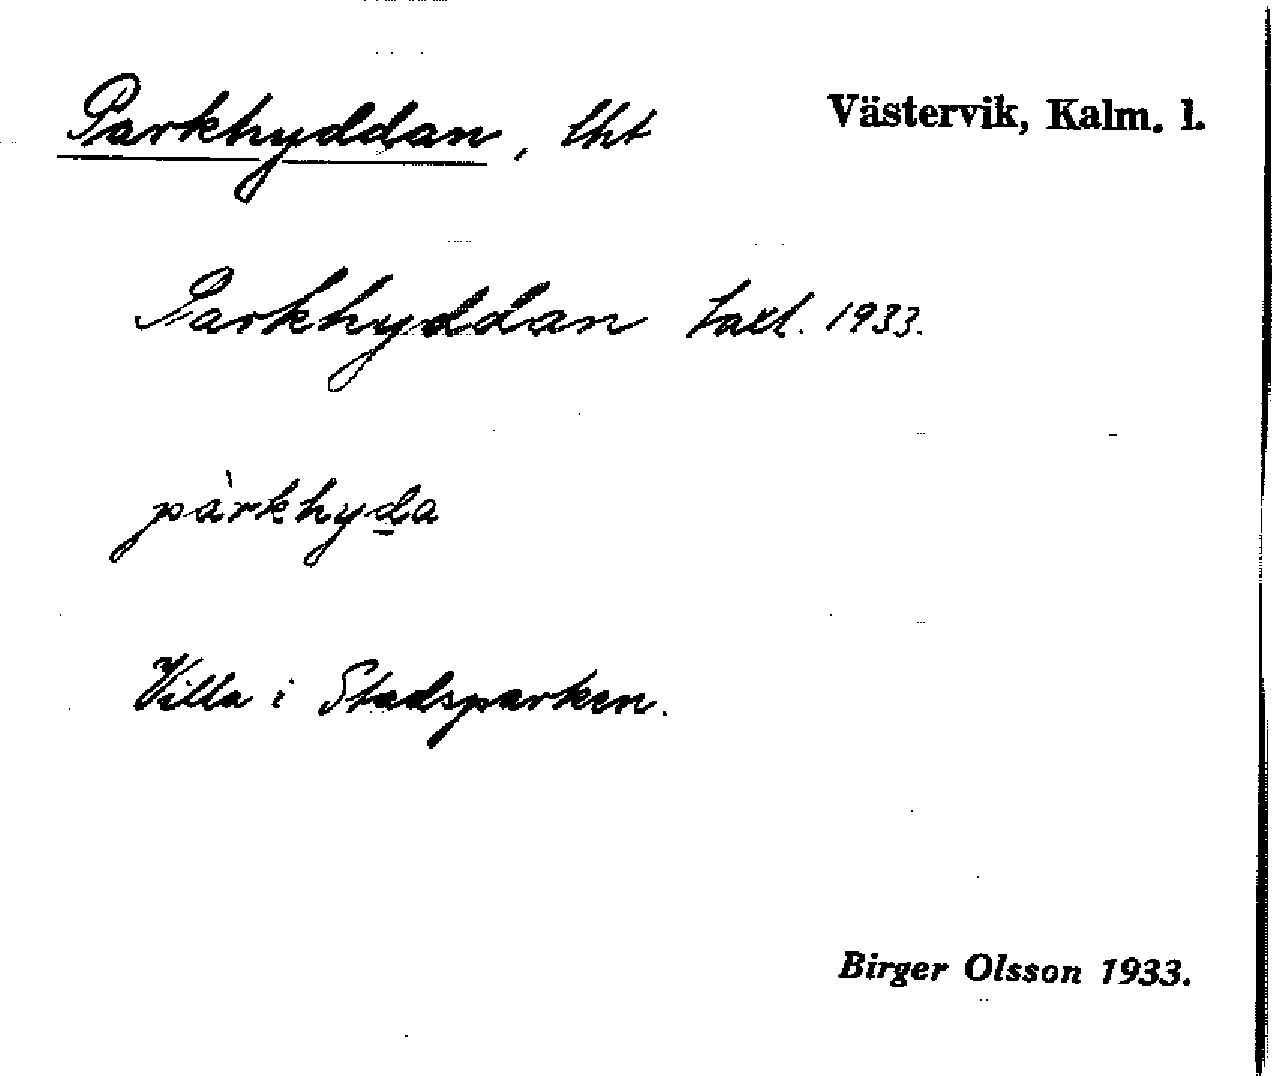 Parkhyddan, lht
Västervik, Kalm. l.
Parkhyddan taxl. 1933.
pàrkhyda
Villa i Stadsparken.
Birger Olsson 1933.